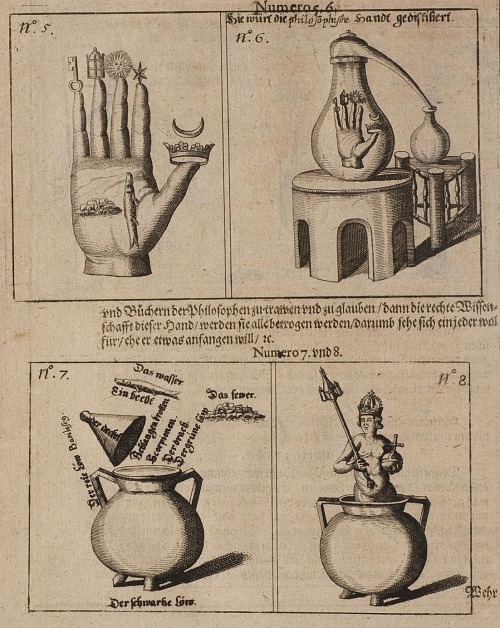 Numero 5. 6.
Hie würt die philosophische Handt gedistiliert.
nº. 5.
nº. 6.
vnd Büchern der Philosophen zu trawen vnd zu glauben / dann die rechte Wissen-
schafft dieser Hand / werden sie alle betrogen werden / darumb sehe sich ein jeder wol
für / ehe er etwas anfangen will / ⁊c.
Numero 7. vnd 8.
nº. 7.
nº. 8.
Das wasser
Ein
Das fewer.
Der
Der rote Löw
Der grüne Löw
Der schwartze Löw.
Wehr